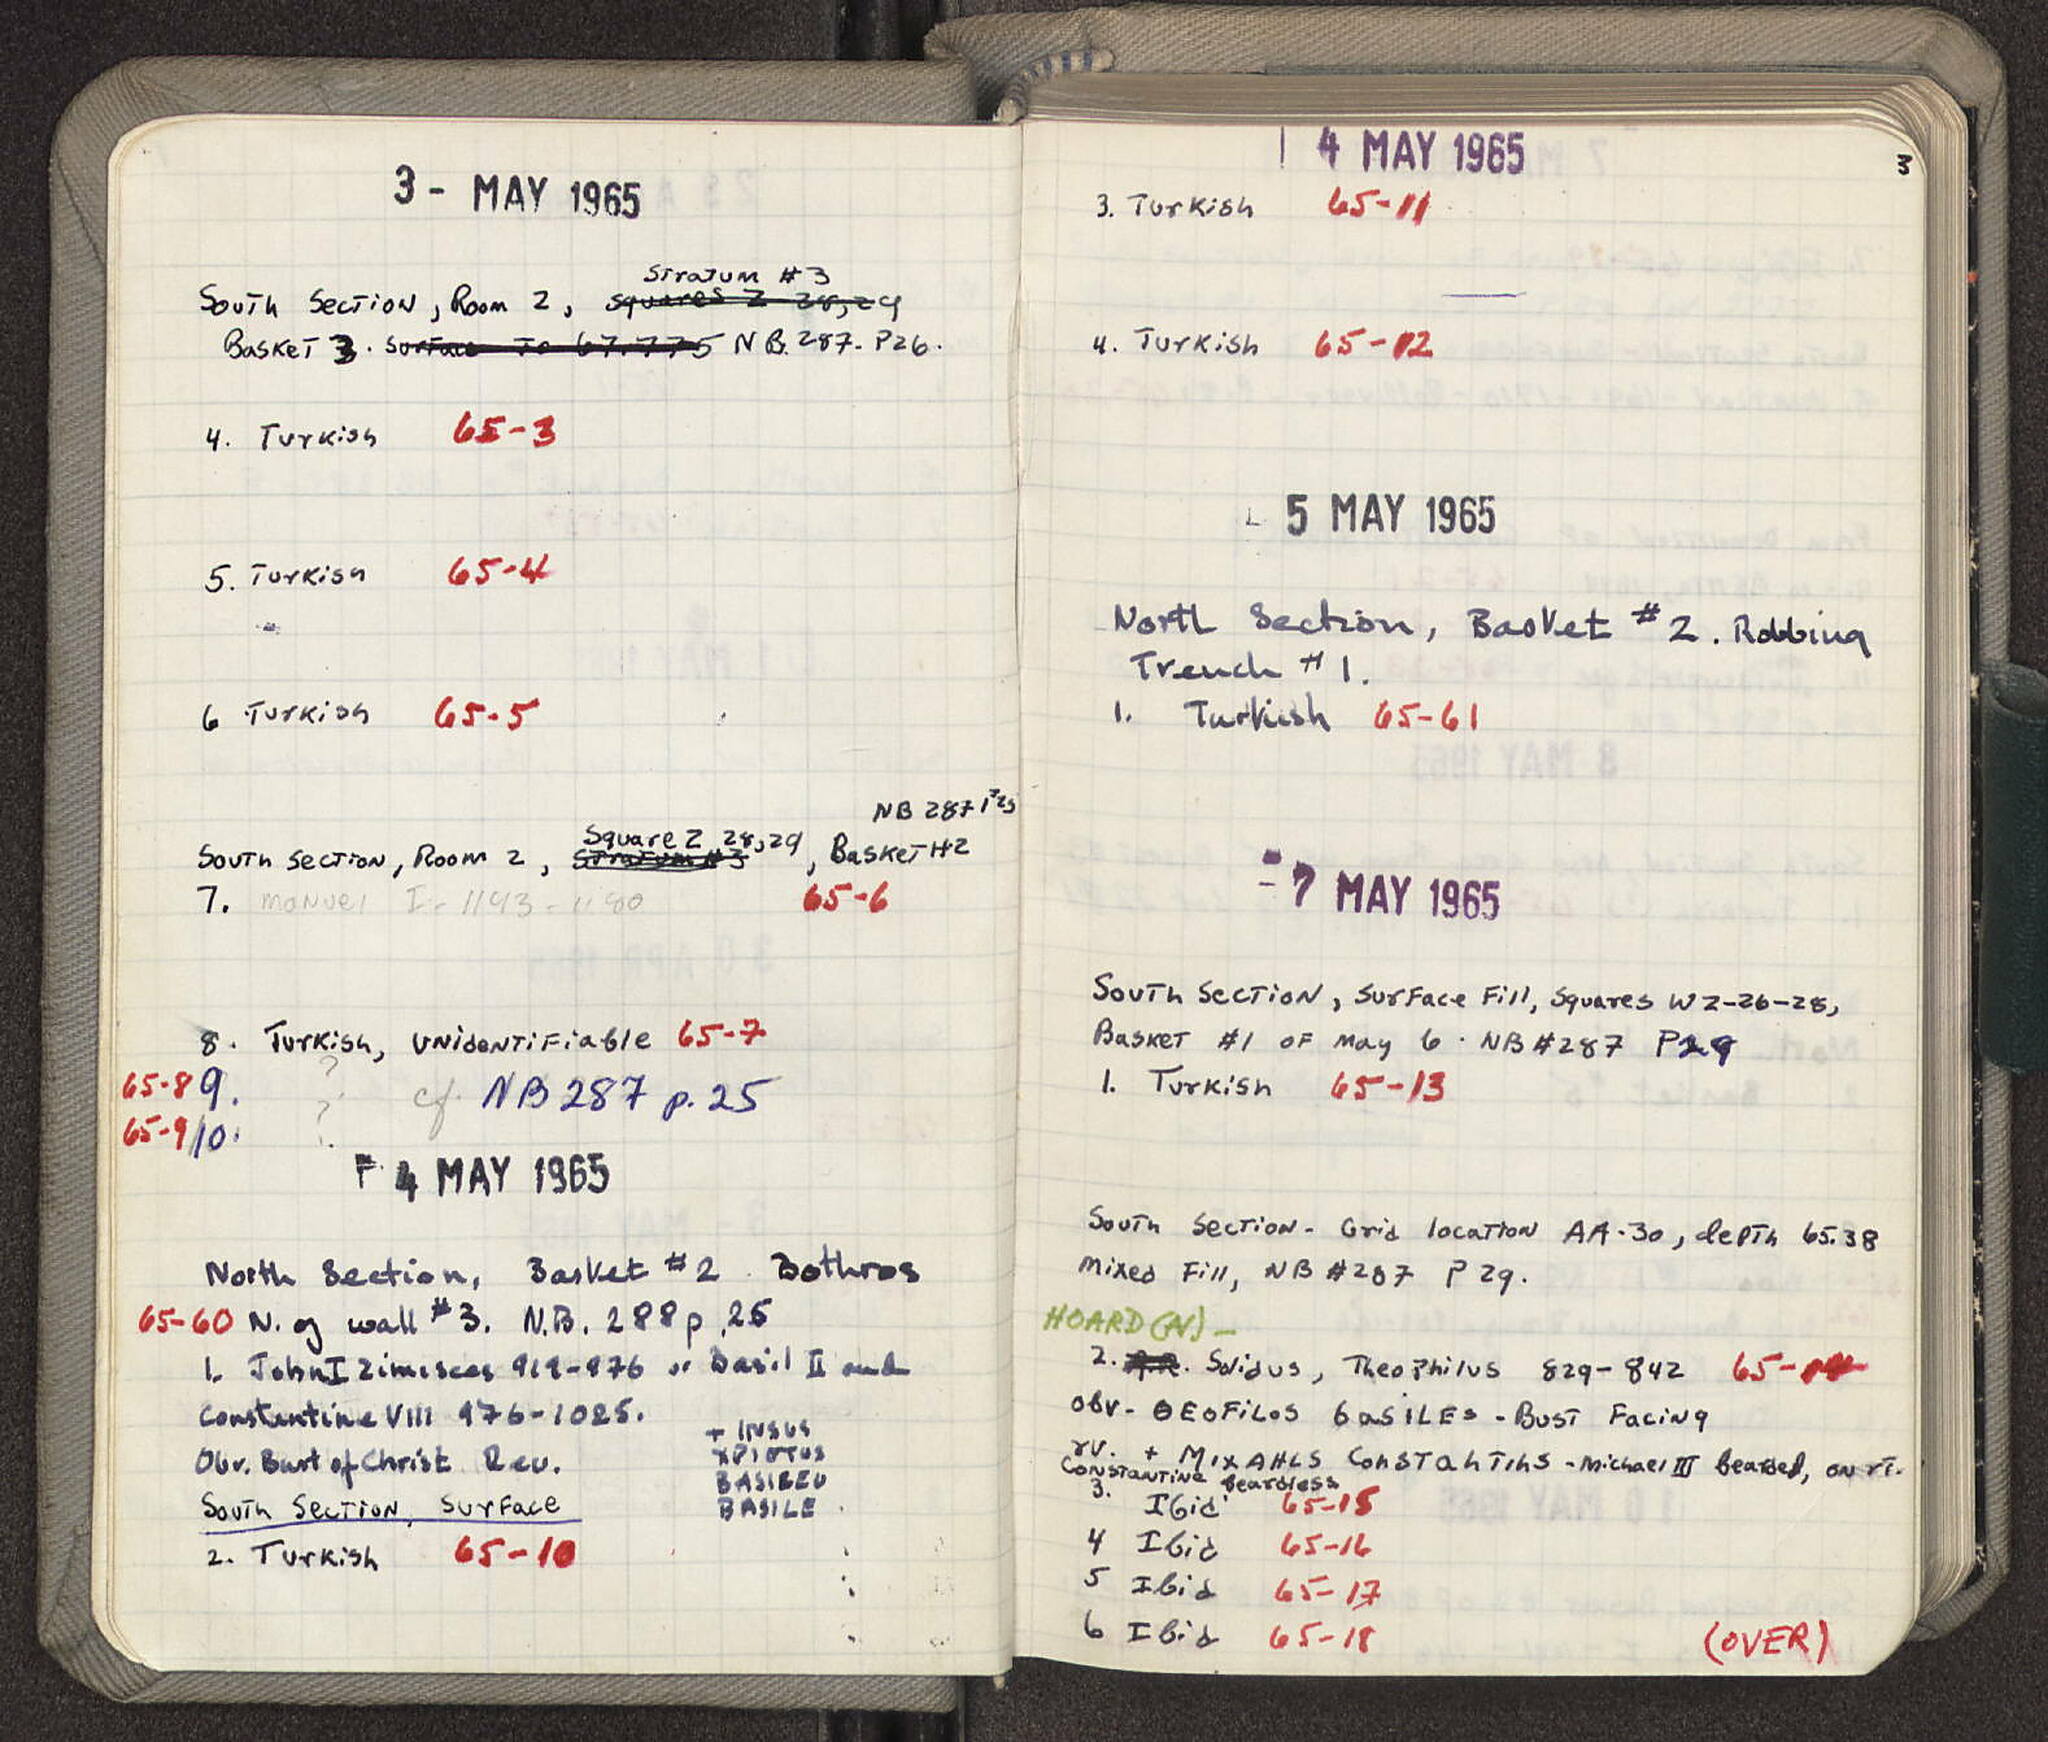 3 - MAY 1965
Stratum #3
South Section, Room 2, squares Z 28,29
Basket 3. Surface To 67.775 NB. 287. P26.
4. Turkish 65-3
5. Turkish 65-4
6 Turkish 65-5
NB 287 P25
Square Z 28,29
South Section, Room 2, Stratum #3, Basket #2
7. Manuel I - 1143-1180 65-6
8. Turkish, Unidentifiable 65-7
65-8 9. ? cf. NB 287 p. 25
65-9 10. ?
4 MAY 1965
North Section, Basket #2. Bothros
65-60 N. of wall #3. N.B. 288 p. 25
1. John I Zimisces 969-976 or Basil II and
Constantine VIII 976-1025.
Obv. Bust of Christ Rev.
+ IHSUS
XPISTUS
BASILEU
BASILE
South Section, Surface
2. Turkish 65-10
3
4 MAY 1965
3. Turkish 65-11
4. Turkish 65-12
5 MAY 1965
North Section, Basket #2. Robbing
Trench #1.
1. Turkish 65-61
- 7 MAY 1965
South Section, Surface Fill, Squares WZ-26-28,
Basket #1 of May 6. NB #287 P29
1. Turkish 65-13
South Section - Grid location AA-30, depth 65.38
Mixed Fill, NB #287 P29.
HOARD (N) -
2. Solidus, Theophilus 829-842 65-14
obv - ΘEOFILOS bASILEs - Bust Facing
rv. + MIXAHLS CONSTAhTIhS - Michael III bearded, on rt.
Constantine beardless
3. Ibid 65-15
4 Ibid 65-16
5 Ibid 65-17
6 Ibid 65-18
(OVER)